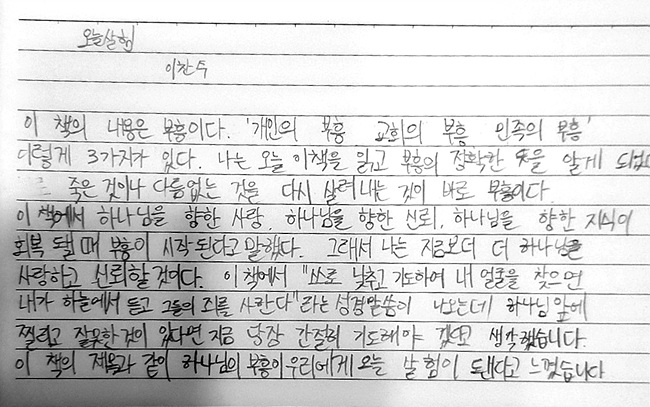 오늘살힘
이찬수
이 책의 내용은 부흥이다. '개인의 부흥 교회의 부흥 민족의 부흥'
이렇게 3가지가 있다. 나는 오늘 이책을 읽고 부흥의 정확한 뜻을 알게 되었다
죽은 것이나 다름없는 것을 다시 살려내는 것이 바로 부흥이다.
이 책에서 하나님을 향한 사랑, 하나님을 향한 신뢰, 하나님을 향한 지식이
회복 될 때 부흥이 시작 된다고 말했다. 그래서 나는 지금보더 더 하나님을
사랑하고 신뢰할것이다. 이 책에서 "스스로 낮추고 기도하여 내 얼굴을 찾으면
내가 하늘에서 듣고 그들의 죄를 사한다"라는 성경말씀이 나오는데 하나님 앞에
찔리고 잘못한것이 있다면 지금 당장 간절히 기도해야 겠다고 생각했습니다.
이 책의 제목과 같이 하나님의 부흥이우리에게 오늘 살 힘이 된다고 느꼈습니다